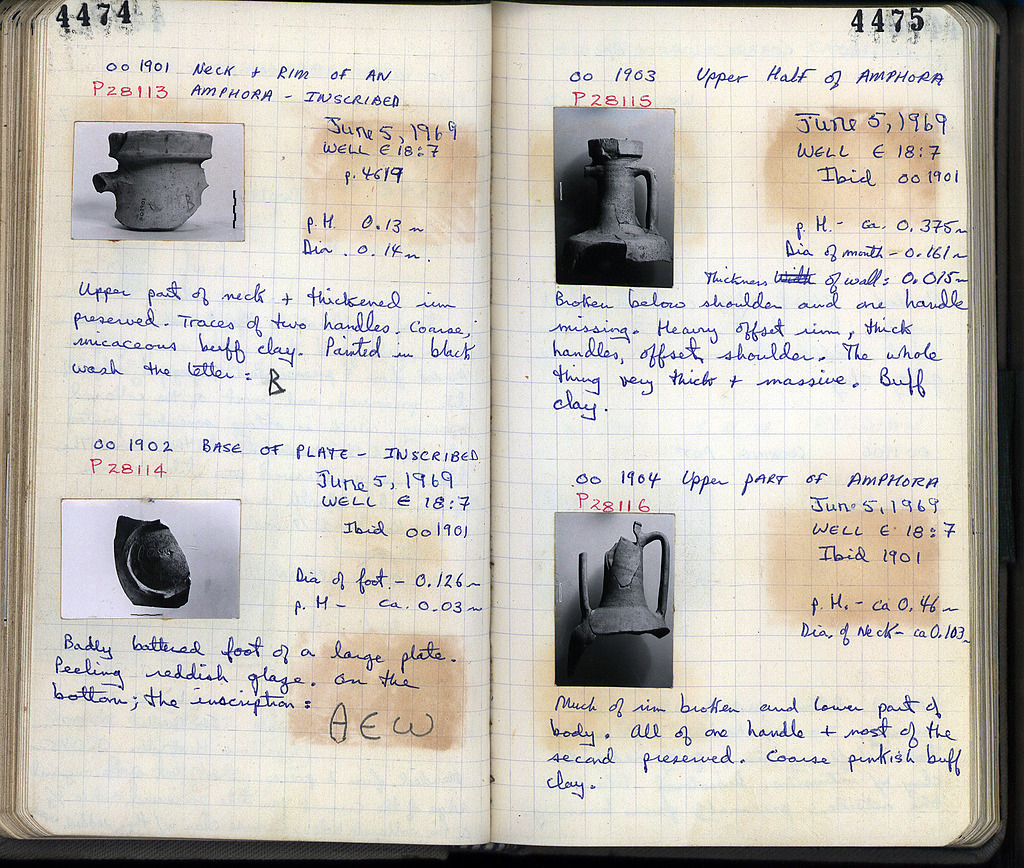 4474
oo 1901 Neck + Rim of an
P28113 Amphora - Inscribed
June 5, 1969
Well E 18:7
p. 4619
p. H. 0.13 m
Dia. 0.14 m.
Upper part of neck + thickened rim
preserved. Traces of two handles. Coarse,
micaceous buff clay. Painted in black
wash the letter: B
oo 1902 Base of Plate - Inscribed
P28114
June 5, 1969
Well E 18:7
Ibid oo 1901
Dia of foot - 0.126 m
p. H - ca. 0.03 m
Badly battered foot of a large plate.
Peeling reddish glaze. On the
bottom; the inscription:
AEW
4475
oo 1903 Upper Half of Amphora
P28115
June 5, 1969
Well E 18:7
Ibid oo 1901
p. H. - ca. 0.375 m
Dia of mouth - 0.161 m
Thickness of wall: 0.015 m
Broken below shoulder and one handle
missing. Heavy offset rim, thick
handles, offset shoulder. The whole
thing very thick + massive. Buff
clay.
oo 1904 Upper part of Amphora
P28116
June 5, 1969
Well E 18:7
Ibid 1901
p. H. - ca 0.46 m
Dia. of Neck - ca 0.103 m
Much of rim broken and lower part of
body. All of one handle + most of the
second preserved. Coarse pinkish buff
clay.